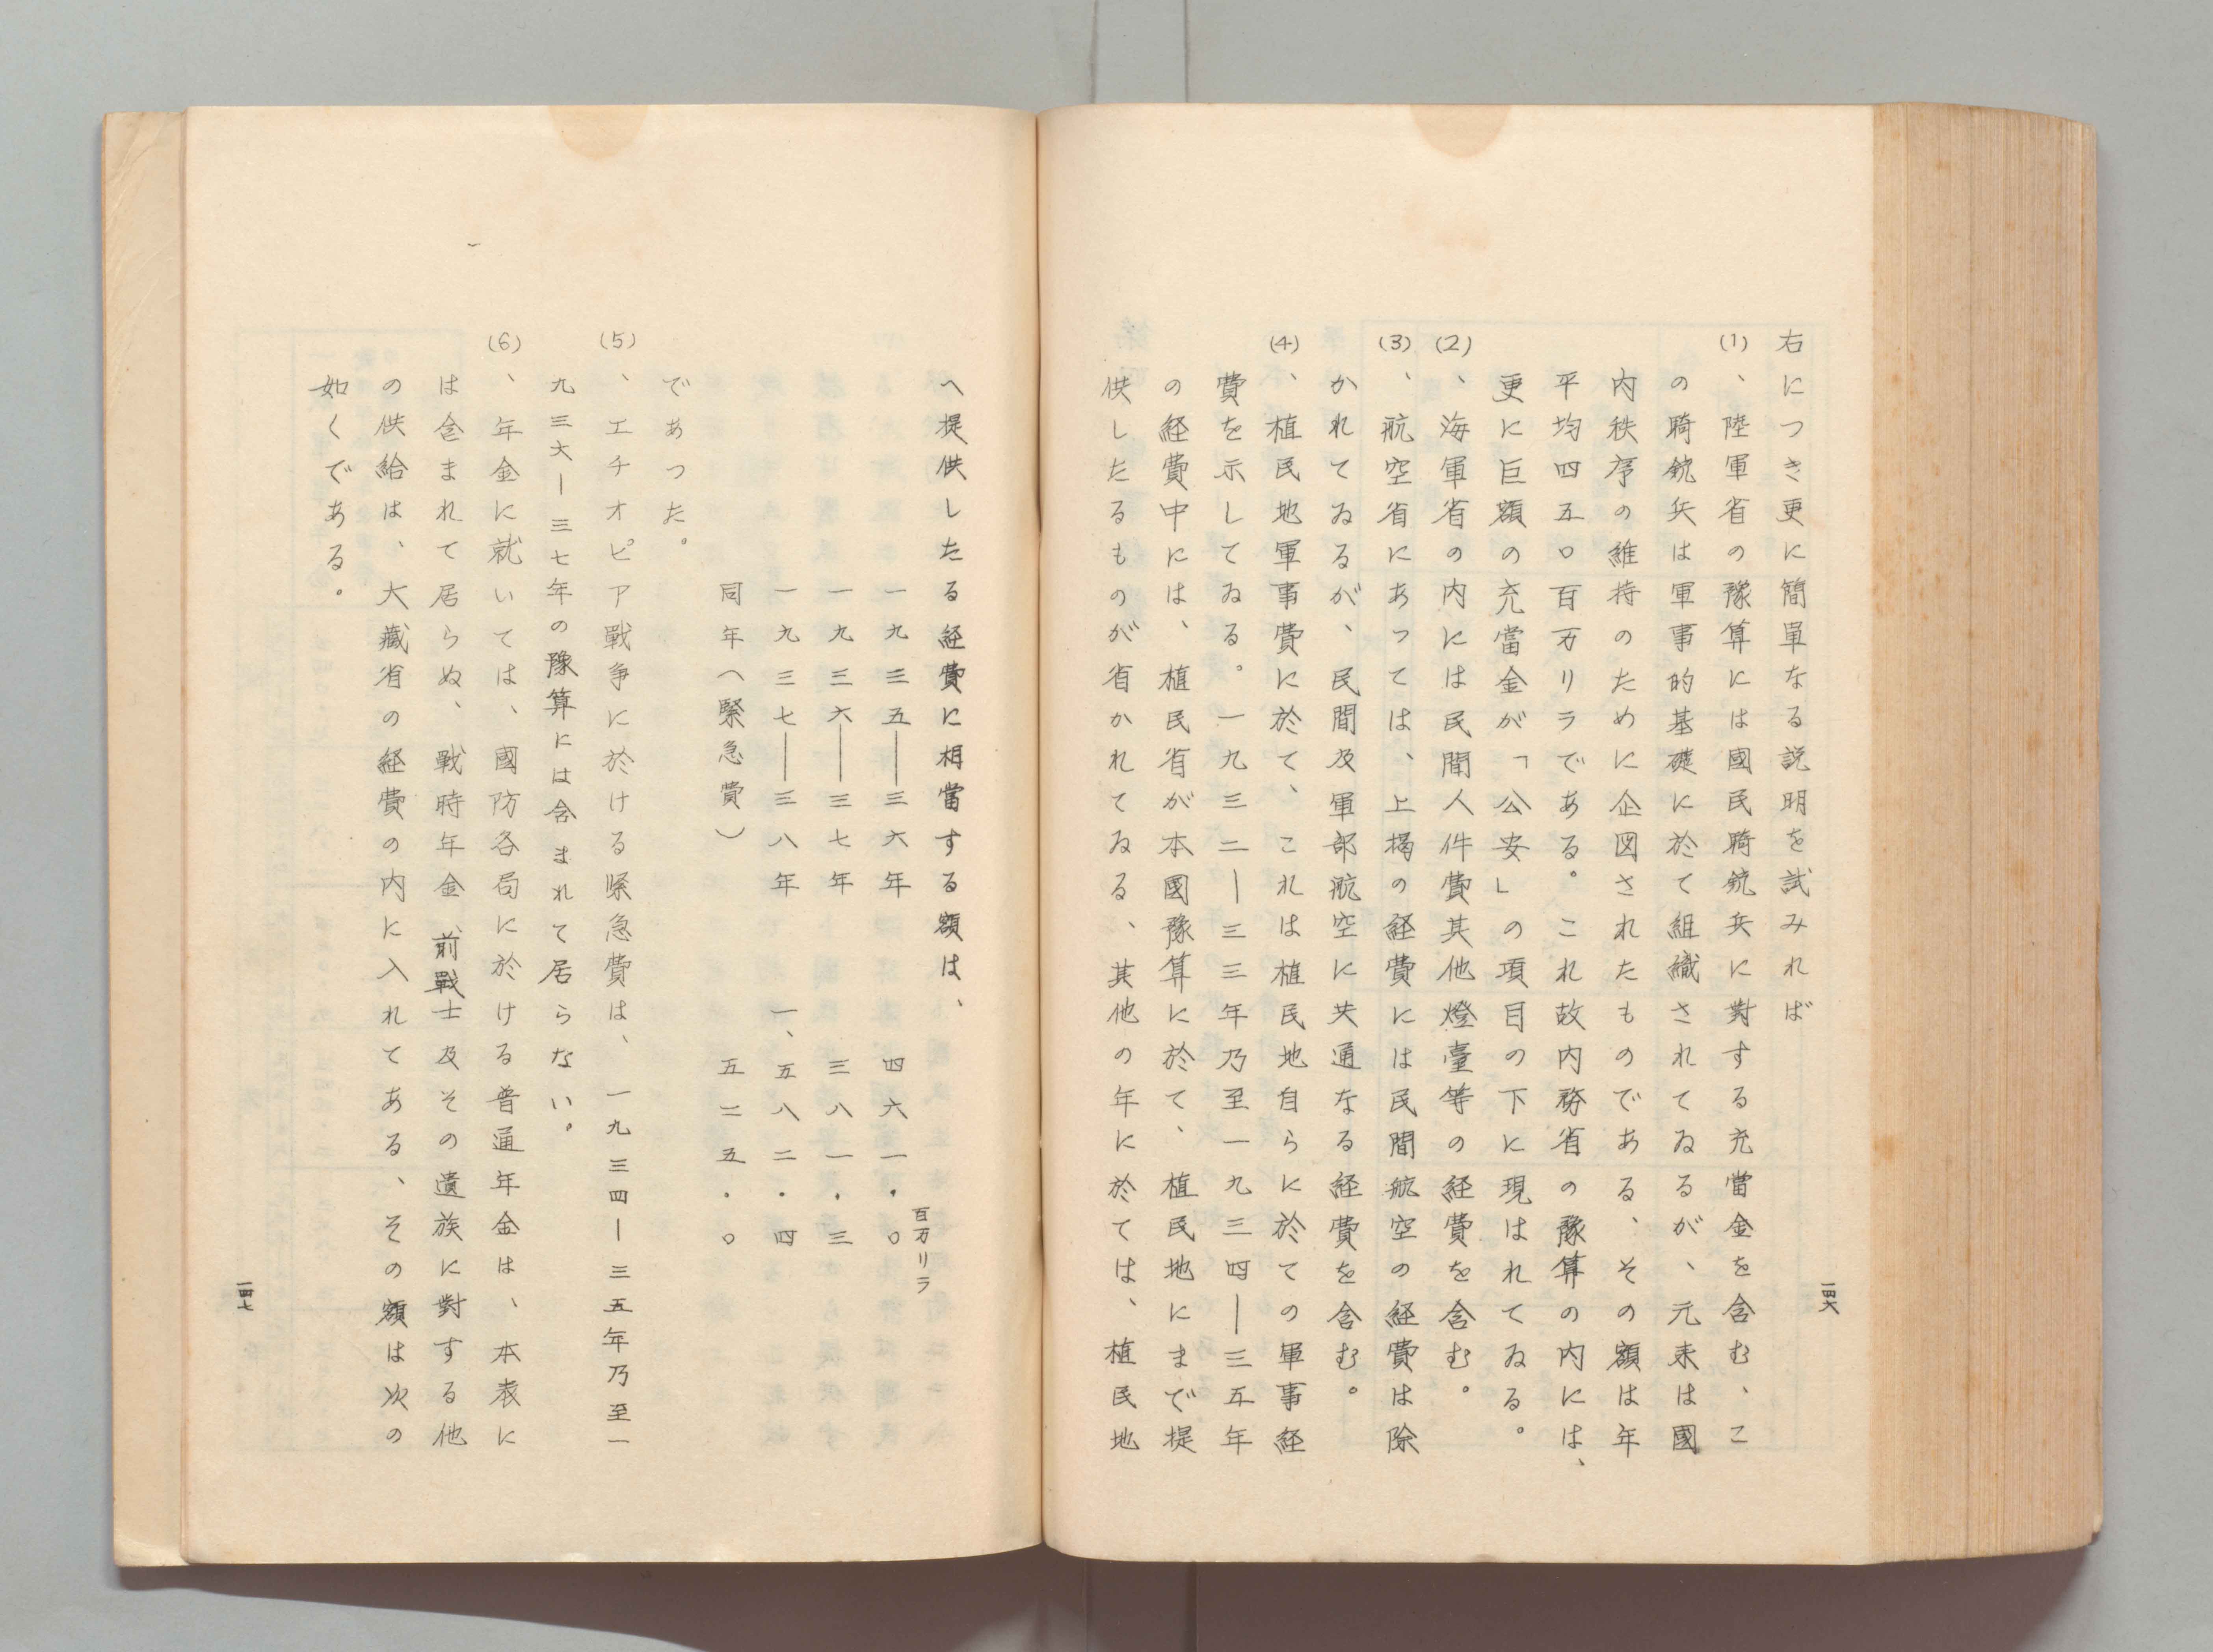 右につき更に簡單なる説明を試みれば
(1)、陸軍省の豫算には國民騎銃兵に對する充當金を含む、こ
の騎銃兵は軍事的基礎に於て組織されてゐるが、元来は國
内秩序の維持のために企図されたものである、その額は年
平均四五〇百万リラである。これ故内務省の豫算の内には、
更に巨額の充當金が「公安」の項目の下に現はれてゐる。
(2)、海軍省の内には民間人件費其他燈臺等の経費を含む。
(3)、航空省にあっては、上掲の経費には民間航空の経費は除
かれてゐるが、民間及軍部航空に共通なる経費を含む。
(4)、植民地軍事費に於て、これは植民地自らに於ての軍事経
費を示してゐる。一九三二―三三年乃至一九三四―三五年
の経費中には、植民省が本國豫算に於て、植民地にまで提
供したるものが省かれてゐる、其他の年に於ては、植民地
一四六
へ提供したる経費に相當する額は、
百万リラ
一九三五――三六年 四六一・〇
一九三六――三七年 三八一・三
一九三七――三八年 一、五八二・四
同年(緊急費) 五二五・〇
であつた。
(5)、エチオピア戰争に於ける緊急費は、一九三四―三五年乃至一
九三六―三七年の豫算には含まれて居らない。
(6)、年金に就いては、國防各局に於ける普通年金は、本表に
は含まれて居らぬ、戰時年金、前戰士及その遺族に對する他
の供給は、大藏省の経費の内に入れてある、その額は次の
如くである。
一四七